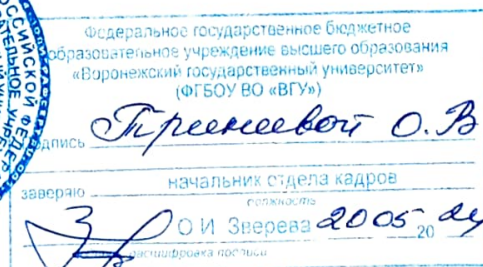 Федеральное государственное бюджетное
образовательное учреждение высшего образования
«Воронежский государственный университет»
(ФГБОУ ВО «ВГУ»)
дпись О.В
заверяю начальник отдела кадров
должность
О.И. Зверева 20 05 20 24
расшифровка подписи